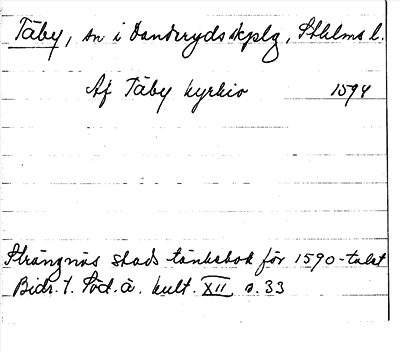 Täby, sn i Danderyds skplg, Sthlms l.
Af Täby kyrkio 1594
Strängnäs stads tänkebok för 1590-talet
Bidr. t. Söd. ä. kult. XII s. 33